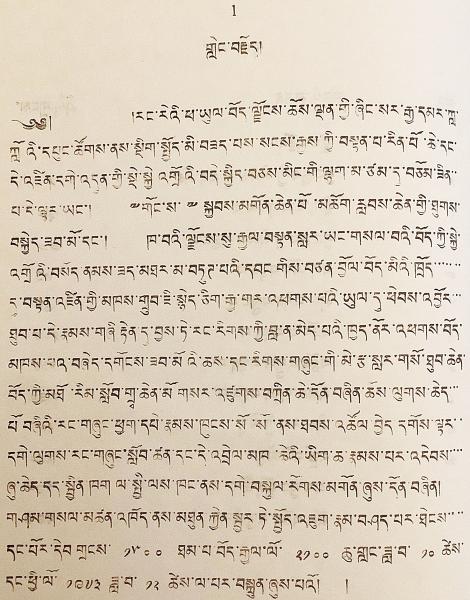 1
གླེང་བརྗོད།
༄༅། །རང་རེའི་ཕ་ཡུལ་བོད་ལྗོངས་ཆོས་ལྡན་གྱི་ཞིང་སར་རྒྱ་དམར་ཀླ་
ཀློའི་དཔུང་ཚོགས་ནས་སྡིག་སྤྱོད་མི་བཟད་པས་སངས་རྒྱས་ཀྱི་བསྟན་པ་རིན་པོ་ཆེ་དང་
དེ་འཛིན་དགེ་འདུན་གྱི་སྡེ་སྐྱེ་འགྲོའི་བདེ་སྐྱིད་བཅས་མིང་གི་ལྷག་མ་ཙམ་དུ་བཅོམ་ཟིན་
པ་དེ་ལྟར་ཡང་། ༸གོང་ས་ ༸སྐྱབས་མགོན་ཆེན་པོ་མཆོག་རླབས་ཆེན་གྱི་ཐུགས་
བསྐྱེད་ཟབ་མོ་དང་། ཁ་བའི་ལྗོངས་སུ་རྒྱལ་བསྟན་སླར་ཡང་གསལ་བའི་བོད་ཀྱི་སྐྱེ་
འགྲོའི་བསོད་ནམས་ཟད་མཐར་མ་བཏུཊ་པའི་དབང་གིས་བཙན་བྱོལ་བོད་མིའི་ཁྲོད་......
དུ་བསྟན་འཛིན་གྱི་མཁས་གྲུབ་ཇི་སྙེད་ཅིག་རྒྱ་གར་འཕགས་པའི་ཡུལ་དུ་ཕེབས་འབྱོར་
ཐུབ་པ་དེ་རྣམས་གཞི་རྟེན་དུ་བྱས་ཏེ་རང་རིགས་ཀྱི་བླ་ན་མེད་པའི་ཁྱད་ནོར་འཕགས་བོད་
མཁས་པའི་བརྗེད་དགོངས་ཟབ་མོའི་ཆོས་དང་རིགས་གཞུང་གི་མེ་རྩ་སླར་གསོ་ཐུབ་ཆེན་
བོད་ཀྱི་མཐོ་རིམ་སློབ་གྲྭ་ཆེན་མོ་གསར་འཛུགས་བཀྲིན་ཆེ་དོན་བཞིན་ཆོས་ལུགས་ཆེད་
པོ་བཞིའི་རང་གཞུང་ཕྱག་དཔེ་རྣམས་ཁུངས་སོ་སོ་ནས་ཐབས་འཚོལ་བྱེད་དགོས་ལྟར་
དགེ་ལུགས་རང་གཞུང་སློབ་ཚན་དང་དེ་འབྲེལ་མཁོ་ཆེའི་ཡིག་ཆ་རྣམས་པར་འདེབས་
ཞུ་ཆེད་དད་སྤྱིན་ཁག་ལ་སྤྱི་ལས་ཁང་ནས་དགེ་བསྐུལ་རོགས་མགོན་ཞུས་དོན་བཞིན།
གཤམ་གསལ་མཚན་འཁོད་ནས་མཐུན་རྐྱེན་སྦྱར་ཏེ་སྤྲོད་འཇུག་རྣམ་བཤད་པར་ཐེངས་
དང་པོར་དེབ་གྲངས་ ༡༥༠༠ ཐམ་པ་བོད་རྒྱལ་ལོ་ ༢༡༠༠ ཆུ་གླང་ཟླ་བ་ ༡༠ ཚེས་
དང་ཕྱི་ལོ་ ༡༩༧༣ ཟླ་བ་ ༡༢ ཚེས་ལ་པར་བསྐྲུན་ཞུས་པའོ། །